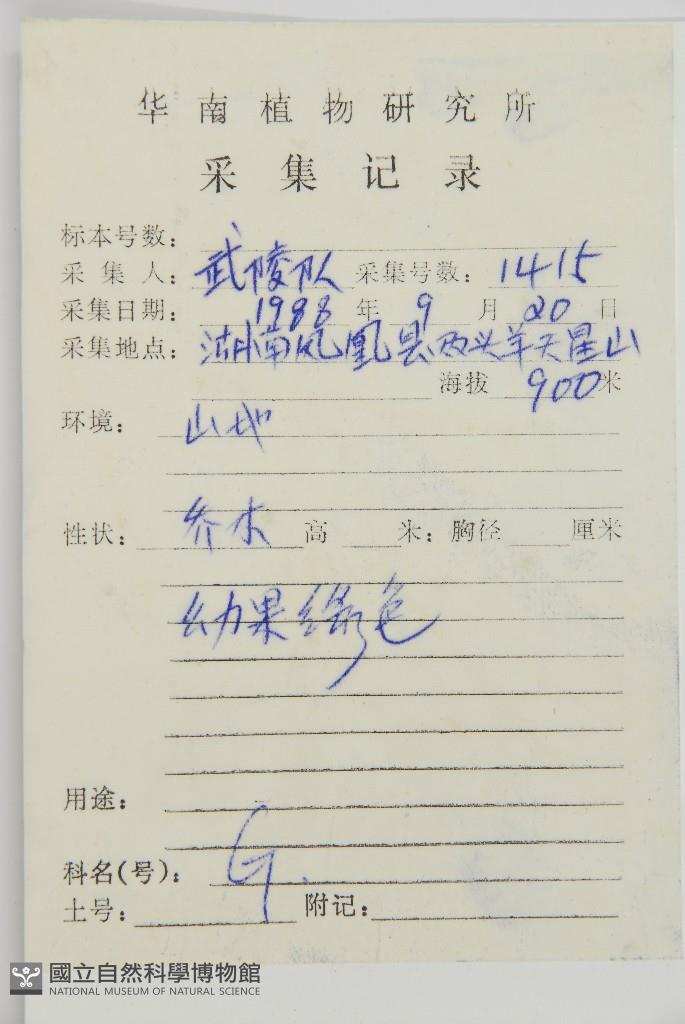 华南植物研究所
采集记录
标本号数：
采集人：武陵队 采集号数：1415
采集日期：1988年9月20日
采集地点：湖南凤凰县两头羊天星山
海拔900米
环境：山地
性状：乔木 高 米；胸径 厘米
幼果绿色
用途：
科名(号)：G.
土号： 附记：
國立自然科學博物館
NATIONAL MUSEUM OF NATURAL SCIENCE